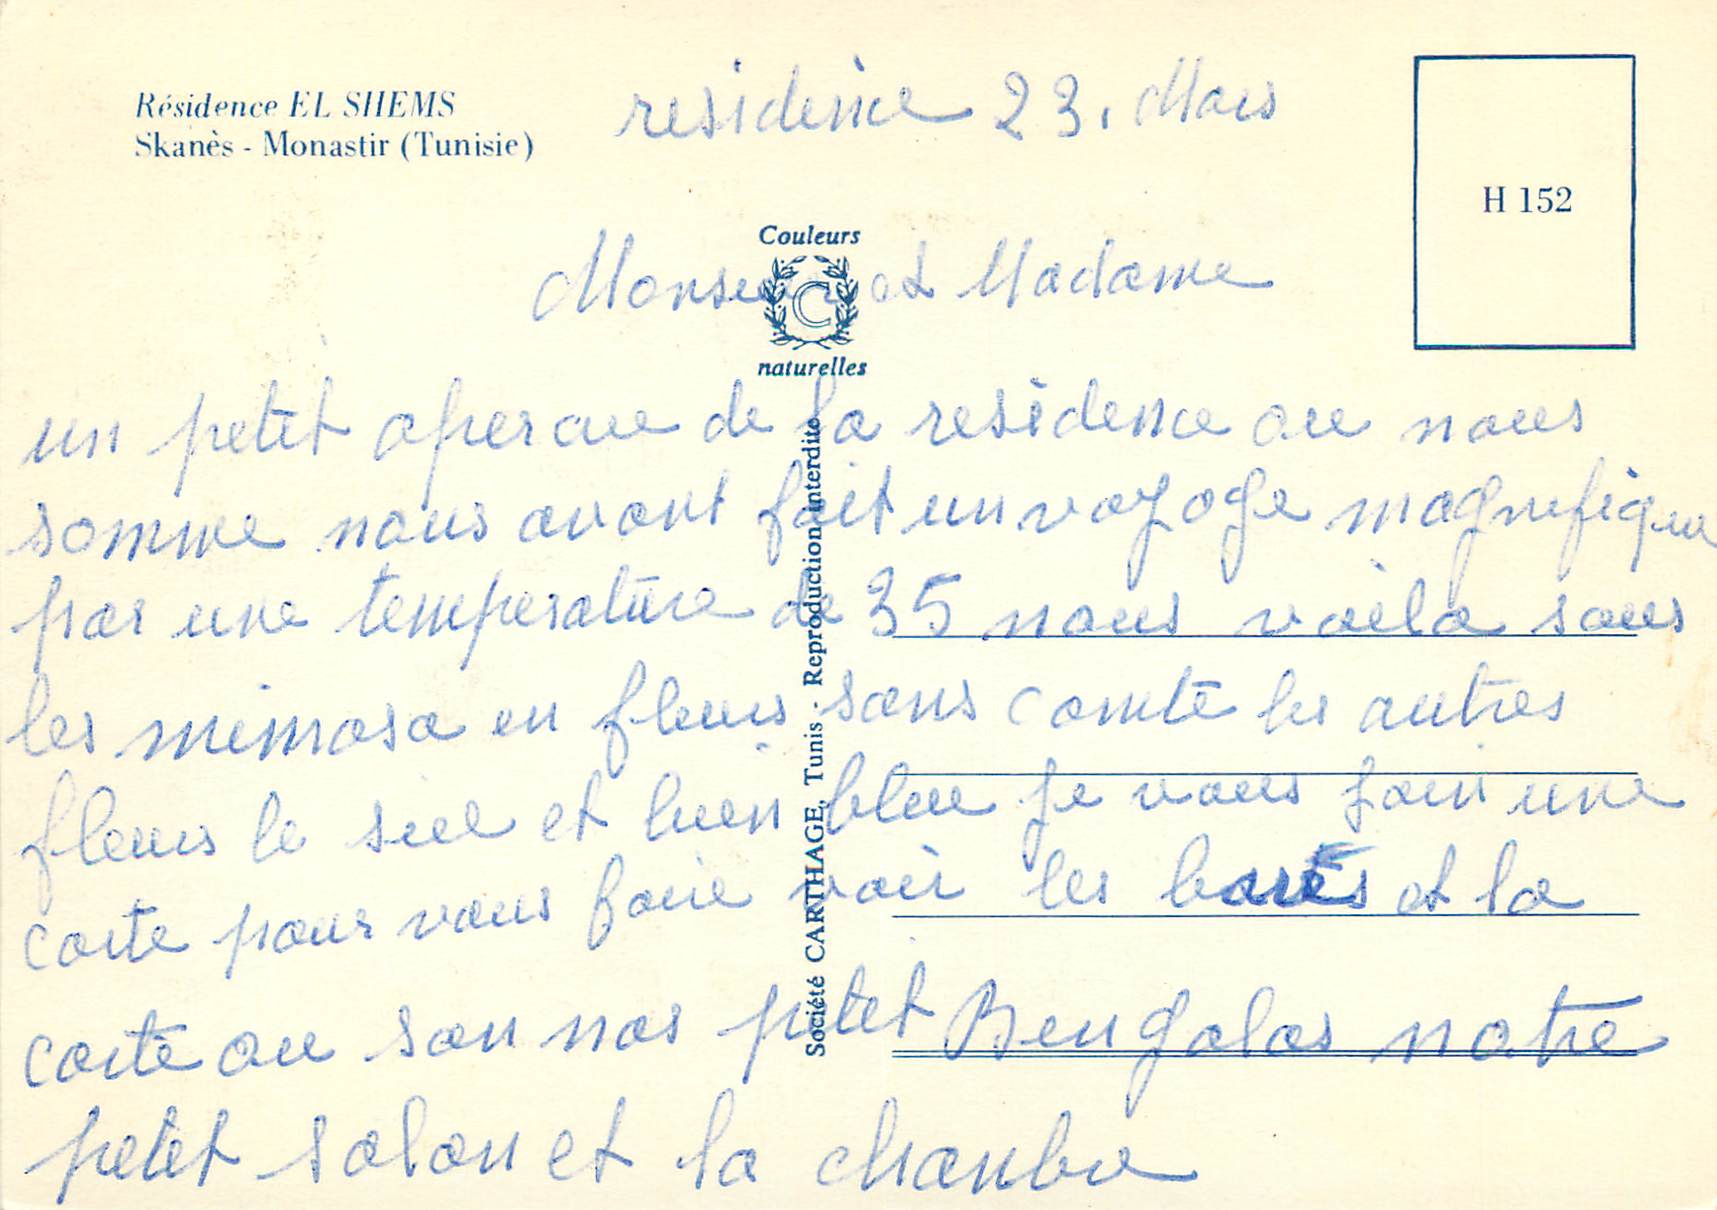 Résidence EL SHEMS
Skanès - Monastir (Tunisie)
residence 23. Mars
H 152
Couleurs
C
naturelles
Monsieur et Madame
un petit apercue de la residence ou nous
somme nous avont fait un voyage magnifique
par une temperature de 35 nous voila sous
les mimosa en fleurs sans comte les autres
fleurs le siel et bien bleu je vous join une
carte pour vous faire voir les et la
carte ou son nos petit Bengalos notre
petit salon et la chanbre
Société CARTHAGE, Tunis - Reproduction interdite